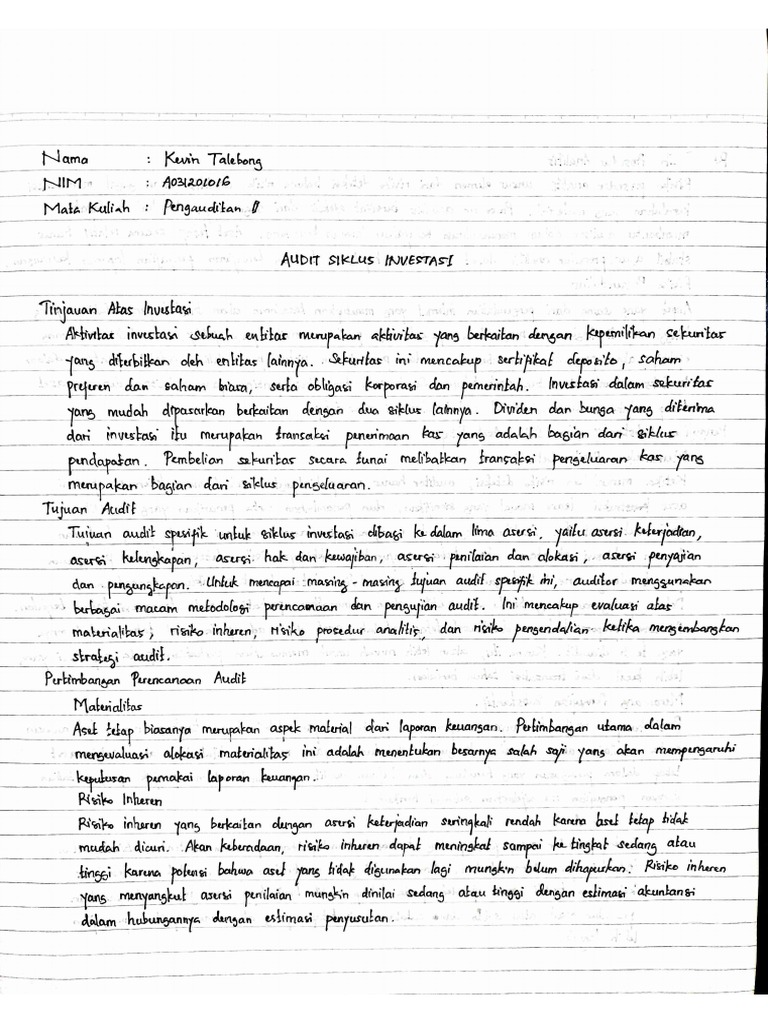 Nama : Kevin Talebong
NIM : A031201016
Mata Kuliah : Pengauditan
AUDIT SIKLUS INVESTASI
Tinjauan Atas Investasi
Aktivitas investasi sebuah entitas merupakan aktivitas yang berkaitan dengan kepemilikan sekuritas
yang diterbitkan oleh entitas lainnya. Sekuritas ini mencakup sertifikat deposito, saham
preferen dan saham biasa, serta obligasi korporasi dan pemerintah. Investasi dalam sekuritas
yang mudah dipasarkan berkaitan dengan dua siklus lainnya. Dividen dan bunga yang diterima
dari investasi itu merupakan transaksi penerimaan kas yang adalah bagian dari siklus
pendapatan. Pembelian sekuritas secara tunai melibatkan transaksi pengeluaran kas yang
merupakan bagian dari siklus pengeluaran.
Tujuan Audit
Tujuan audit spesifik untuk siklus investasi dibagi ke dalam lima asersi, yaitu asersi keterjadian,
asersi kelengkapan, asersi hak dan kewajiban, asersi penilaian dan alokasi, asersi penyajian
dan pengungkapan. Untuk mencapai masing-masing tujuan audit spesifik ini, auditor menggunakan
berbagai macam metodologi perencanaan dan pengujian audit. Ini mencakup evaluasi atas
materialitas, risiko inheren, risiko prosedur analitis, dan risiko pengendalian ketika mengembangkan
strategi audit.
Pertimbangan Perencanaan Audit
Materialitas
Aset tetap biasanya merupakan aspek material dari laporan keuangan. Pertimbangan utama dalam
mengevaluasi alokasi materialitas ini adalah menentukan besarnya salah saji yang akan mempengaruhi
keputusan pemakai laporan keuangan.
Risiko Inheren
Risiko inheren yang berkaitan dengan asersi keterjadian seringkali rendah karena aset tetap tidak
mudah dicuri. Akan keberadaan, risiko inheren dapat meningkat sampai ke tingkat sedang atau
tinggi karena potensi bahwa aset yang tidak digunakan lagi mungkin belum dihapuskan. Risiko inheren
yang menyangkut asersi penilaian mungkin dinilai sedang atau tinggi dengan estimasi akuntansi
dalam hubungannya dengan estimasi penyusutan.